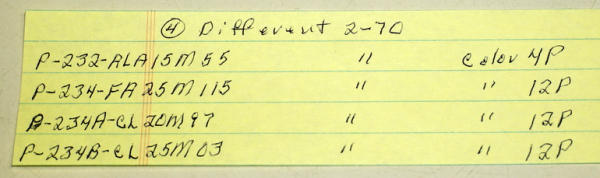 ④ Different 2-70
P-232-RLA 15M55 " Color 4P
P-234-FA 25M115 " " 12P
P-234A-CL 20M97 " " 12P
P-234B-CL 25M03 " " 12P